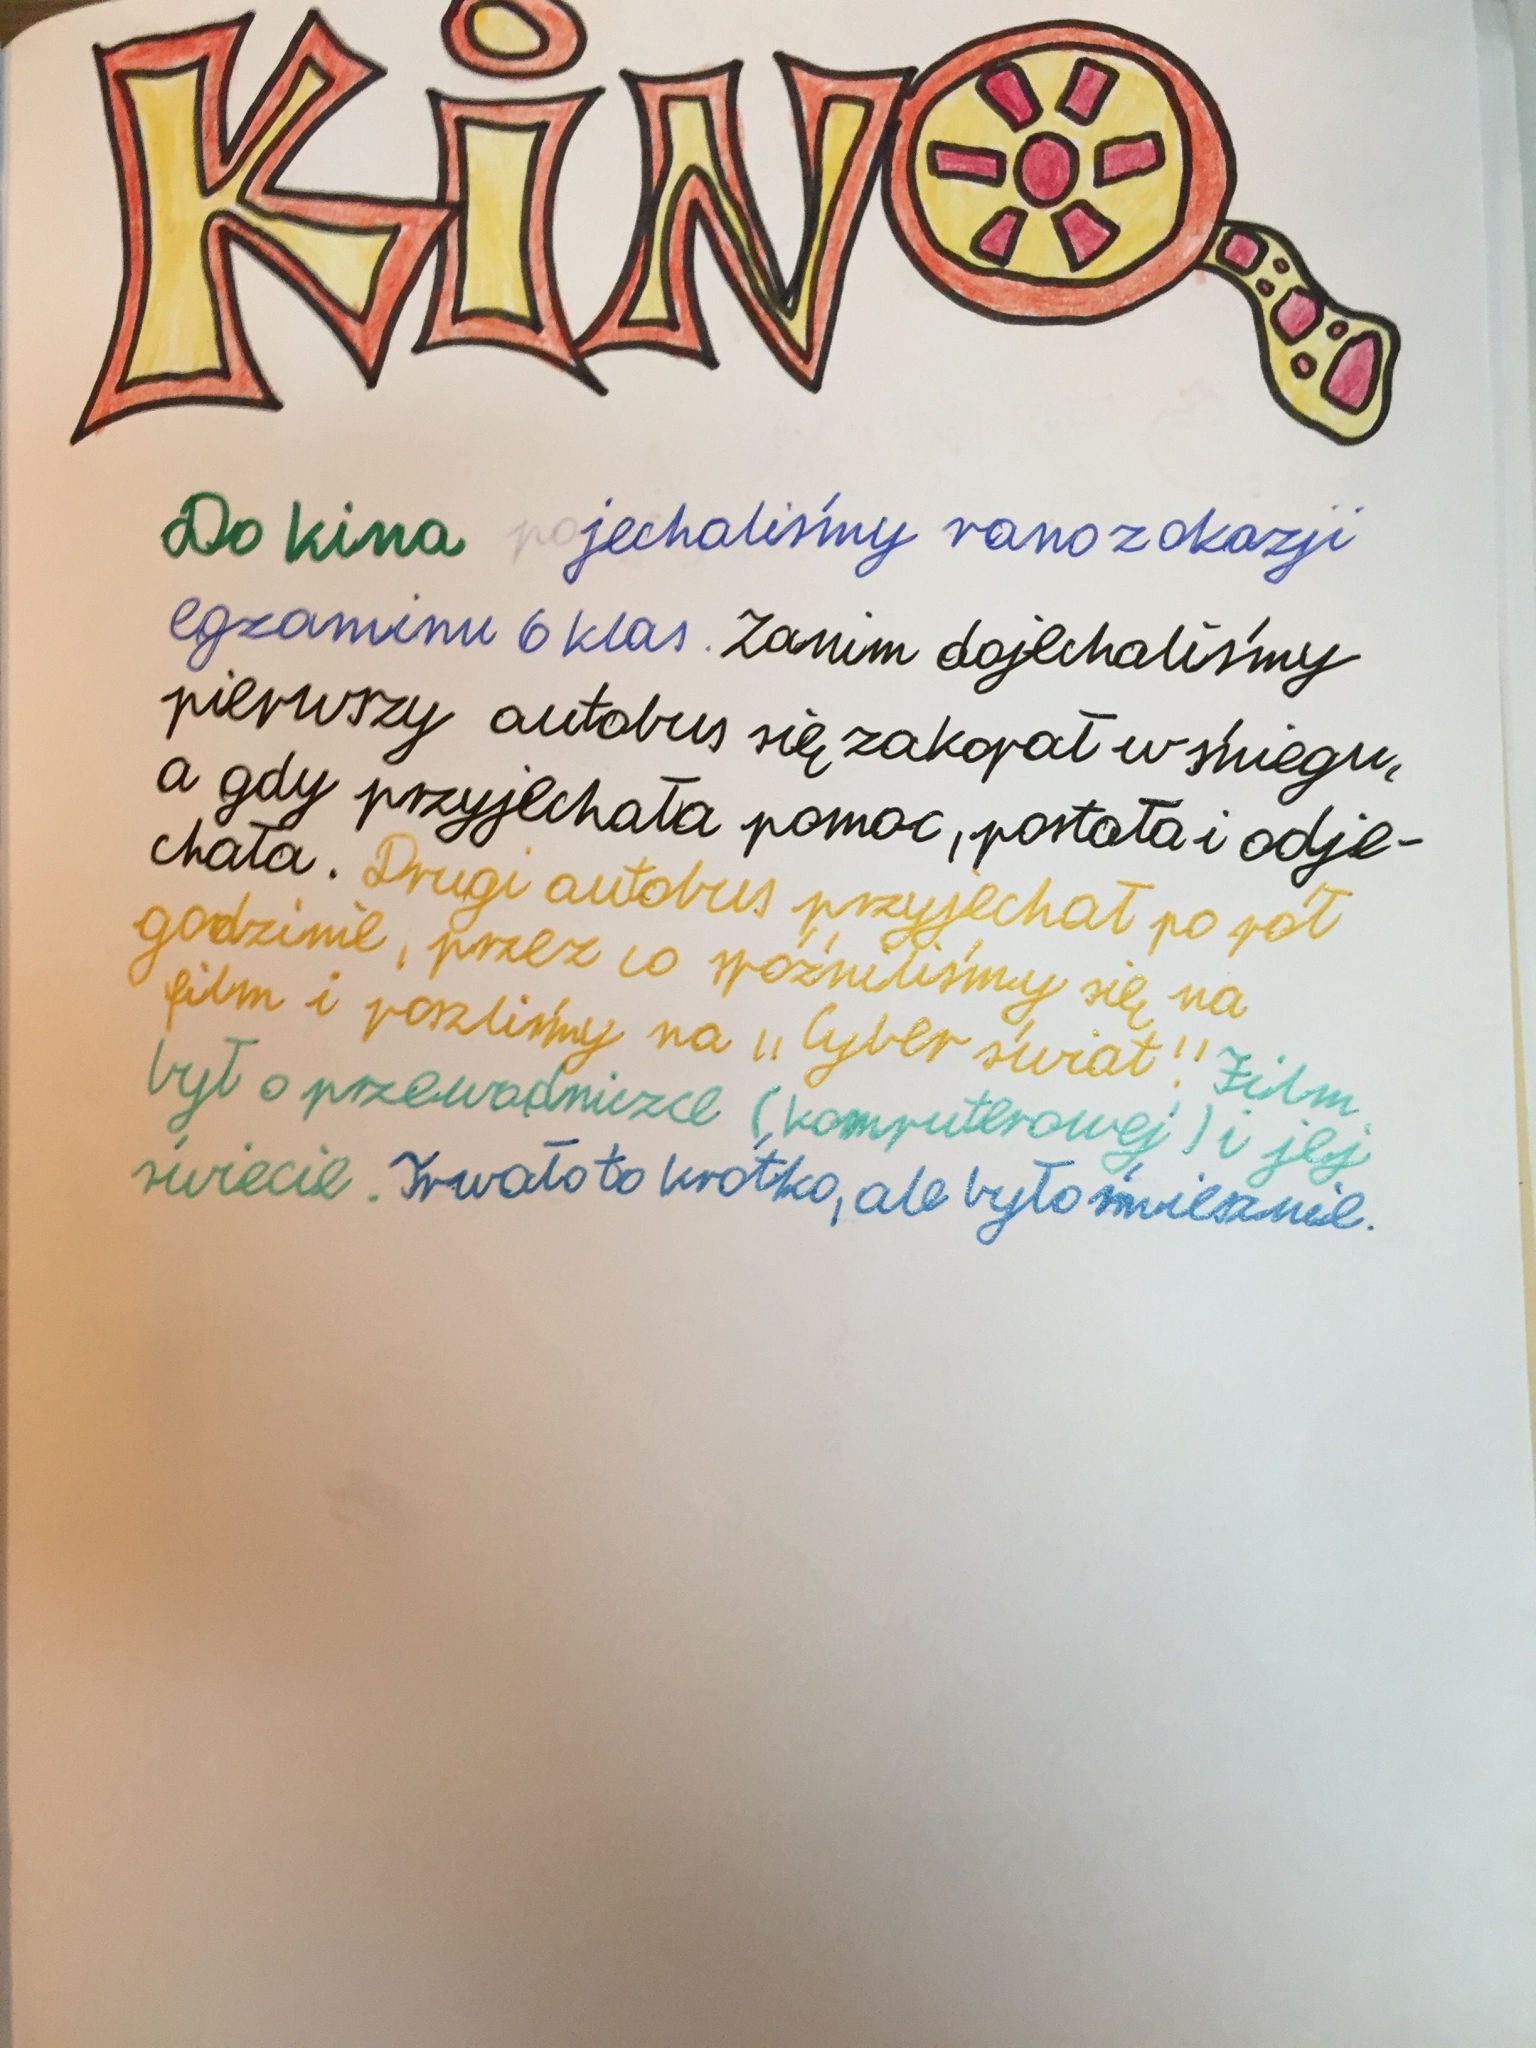 KiNO
Do kina pojechaliśmy rano z okazji
egzaminu 6 klas. Zanim dojechaliśmy
pierwszy autobus się zakopał w śniegu,
a gdy przyjechała pomoc, postała i odje-
chała. Drugi autobus przyjechał po pół
godzinie, przez co spóźniliśmy się na
film i poszliśmy na "Cyber świat" Film
był o przewodniczce (komputerowej) i jej
świecie. Trwało to krótko, ale było śmiesznie.